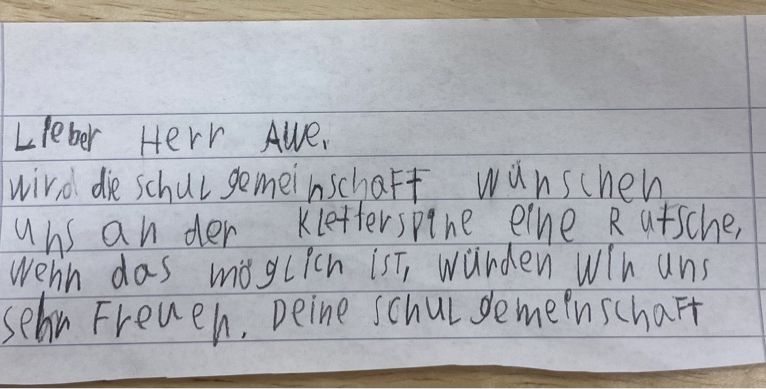 Lieber Herr Awe,
wir, die schulgemeinschaft wünschen
uns an der Kletterspine eine Rutsche,
wenn das möglich ist, würden wir uns
sehr Freuen. Deine schulgemeinschaft